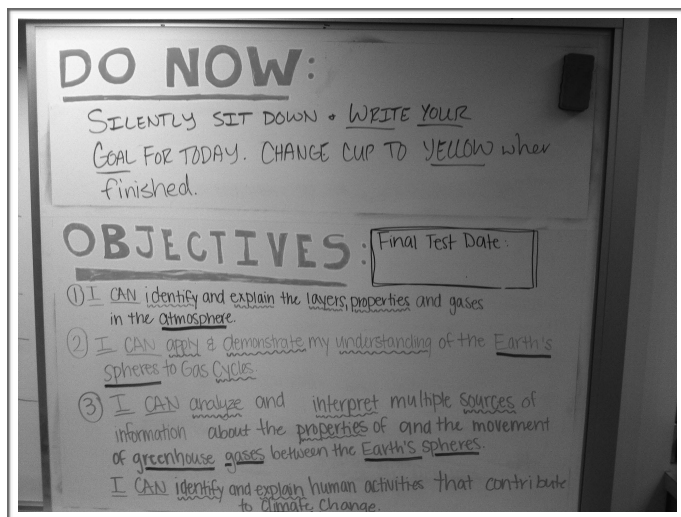 DO NOW:
SILENTLY SIT DOWN + WRITE YOUR
GOAL FOR TODAY. CHANGE CUP TO YELLOW when
finished.
OBJECTIVES:
Final Test Date:
① I CAN identify and explain the layers, properties and gases
in the atmosphere.
② I CAN apply & demonstrate my understanding of the Earth's
spheres to Gas Cycles.
③ I CAN analyze and interpret multiple sources of
information about the properties of and the movement
of greenhouse gases between the Earth's spheres.
I CAN identify and explain human activities that contribute
to climate change.